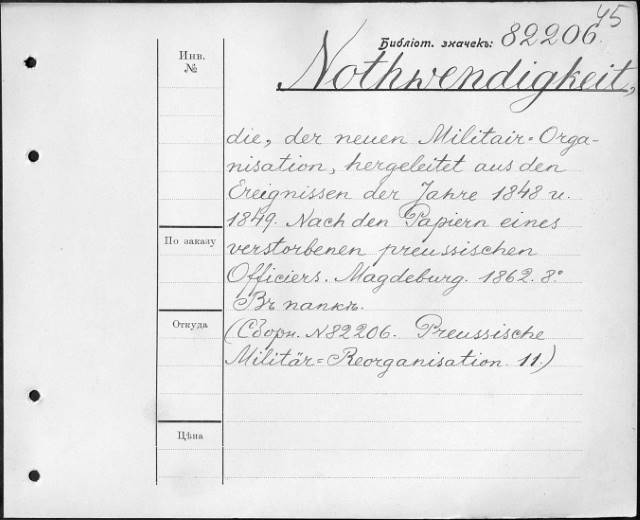 45
Библіот. значекъ: 82206.
Инв.
№
Nothwendigkeit,
die, der neuen Militair-Orga-
nisation, hergeleitet aus den
Ereignissen der Jahre 1848 u.
1849. Nach den Papiern eines
По заказу
verstorbenen preussischen
Officiers. Magdeburg. 1862. 8°
Въ папкѣ.
Откуда
(Сборн. №82206. Preussische
Militär=Reorganisation. 11.)
Цѣна